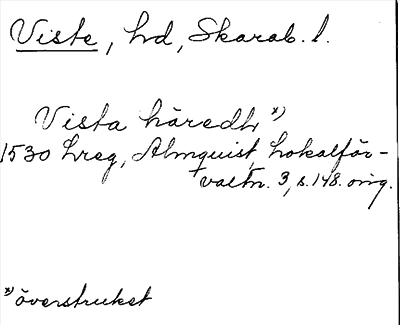 Viste, hd, Skarab. l.
Vista häredh x)
1530 hreg, Almquist, Lokalför-
valtn. 3, s. 148. orig.
x) överstruket